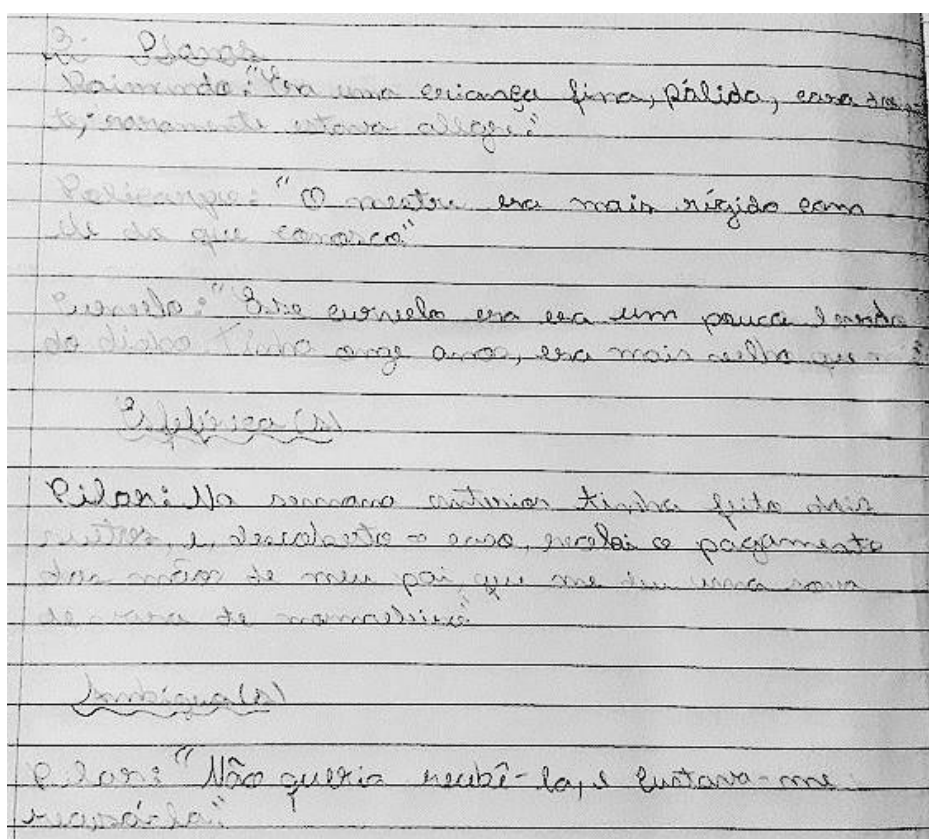 3- Planos
Raimundo: "Era uma criança fina, pálida, cara tris-
te; raramente estava alegre."
Policarpo: "O mestre era mais rígido com
ele do que conosco"
Curvelo: "Esse curvelo era era um pouco levado
do diabo. Tinha onze anos, era mais velho que nós
Esférica (s)
Pilar: Na semana anterior tinha feito dois
suetos, e, descoberto o caso, recebi o pagamento
das mãos de meu pai, que me deu uma sova
de vara de marmeleiro"
Ambígua (s)
Pilar: "Não queria recebê-la, e custava-me
recusá-la"